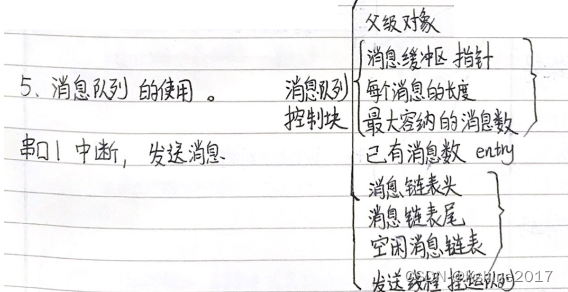 父级对象
消息缓冲区 指针
5、消息队列 的使用。
消息队列
控制块
每个消息的长度
最大容纳的消息数
串口1 中断，发送消息
已有消息数 entry
消息链表头
消息链表尾
空闲消息链表
发送线程 挂起队列